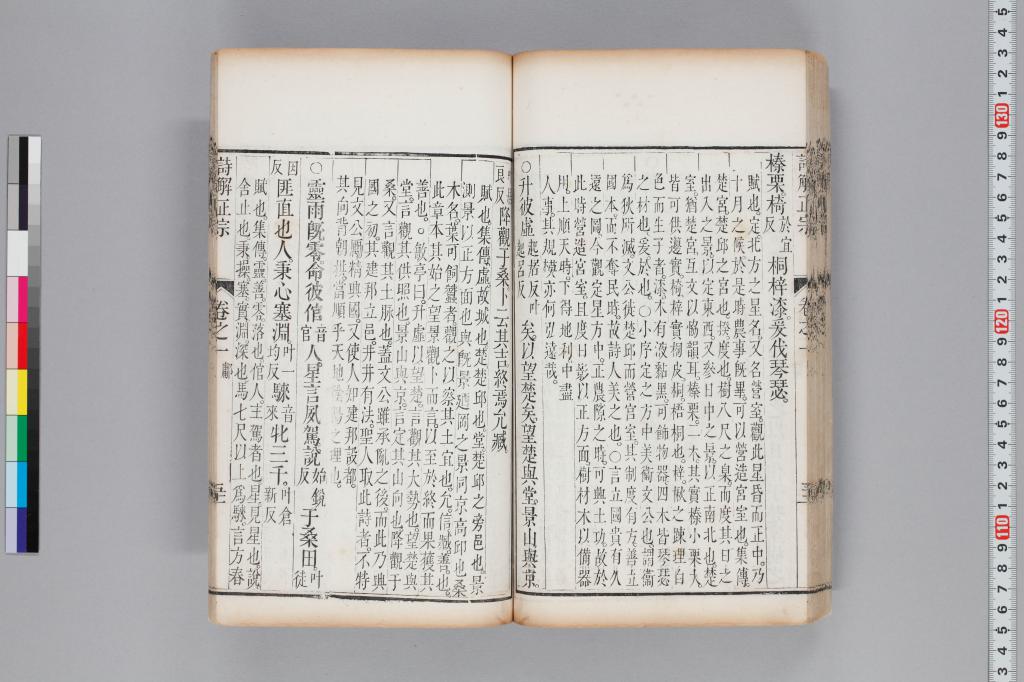 詩解正宗
卷之一
榛栗椅於宜反桐梓漆爰伐琴瑟。
賦也。定北方之星名又名營室觀此星昏而正中。乃
十月之候於是時農事既畢。可以營造宮室也集傳
楚宮楚邱之宮也。揆度也樹八尺之臬而度其日之
出入之景以定東西又參日中之景以正南北也楚
室猶楚宮互文以協韻耳榛栗二木其實榛小栗大
皆可供籩實椅梓實桐皮桐梧桐也。梓楸之疎理白
色而生子者漆木有液黏黑。可飾物器四木皆琴瑟
之材也爰於也。〇小序定之方中美衞文公也謂衞
爲狄所滅文公徙楚邱而營宮室其制度有方善立
國本而不奪民時故詩人美之也。〇言立國貴有久
遠之圖今觀定星方中。正農隙之時可興土功故於
此時營造宮室且度日影以正方面樹材木以備器
用。上順天時。下得地利中盡
人事其規模亦何弘遠哉。
〇升彼虛起居反叶起呂反矣。以望楚矣望楚與堂。景山與京。
良反降觀于桑卜云其吉終焉允臧。
賦也集傳虛故城也楚楚邱也堂楚邱之旁邑也景
測景以正方面也與既景迺岡之景同京高邱也桑
木名。葉可飼蠶者觀之以察其土宜也允。信臧善也。
此章本其始之望景觀卜而言以至於終而果獲其
善也。〇敬亭曰。升虛以望楚。言觀其大勢也。望楚與
堂言觀其供照也景山與京。言定其山向也。降觀于
桑又言觀其土脈也。蓋文公雖承亂之後。而此乃與
國之初其建邦立邑。井井有法。聖人取此詩者。不特
見文公勵精興國。又使人知建邦設都。
其向背朝拱當順乎天地陰陽之理也。
〇靈雨既零。命彼倌音官人。星言夙駕說始銳反于桑田。叶徒
因反匪直也人秉心塞淵。叶一均反騋音來牝三千。叶倉新反
賦也集傳靈善零落也倌人主駕者也星見星也。說
舍止也秉操塞實淵深也馬七尺以上爲騋言方春
詩解正宗
卷之一 鄘